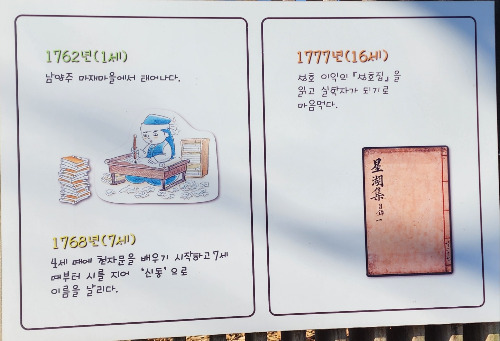 1762년(1세)
남양주 마재마을에서 태어나다.
1768년(7세)
4세 때에 천자문을 배우기 시작하고 7세
때부터 시를 지어 '신동'으로
이름을 날리다.
1777년(16세)
성호 이익의 「성호집」을
읽고 실학자가 되기로
마음먹다.
星湖集